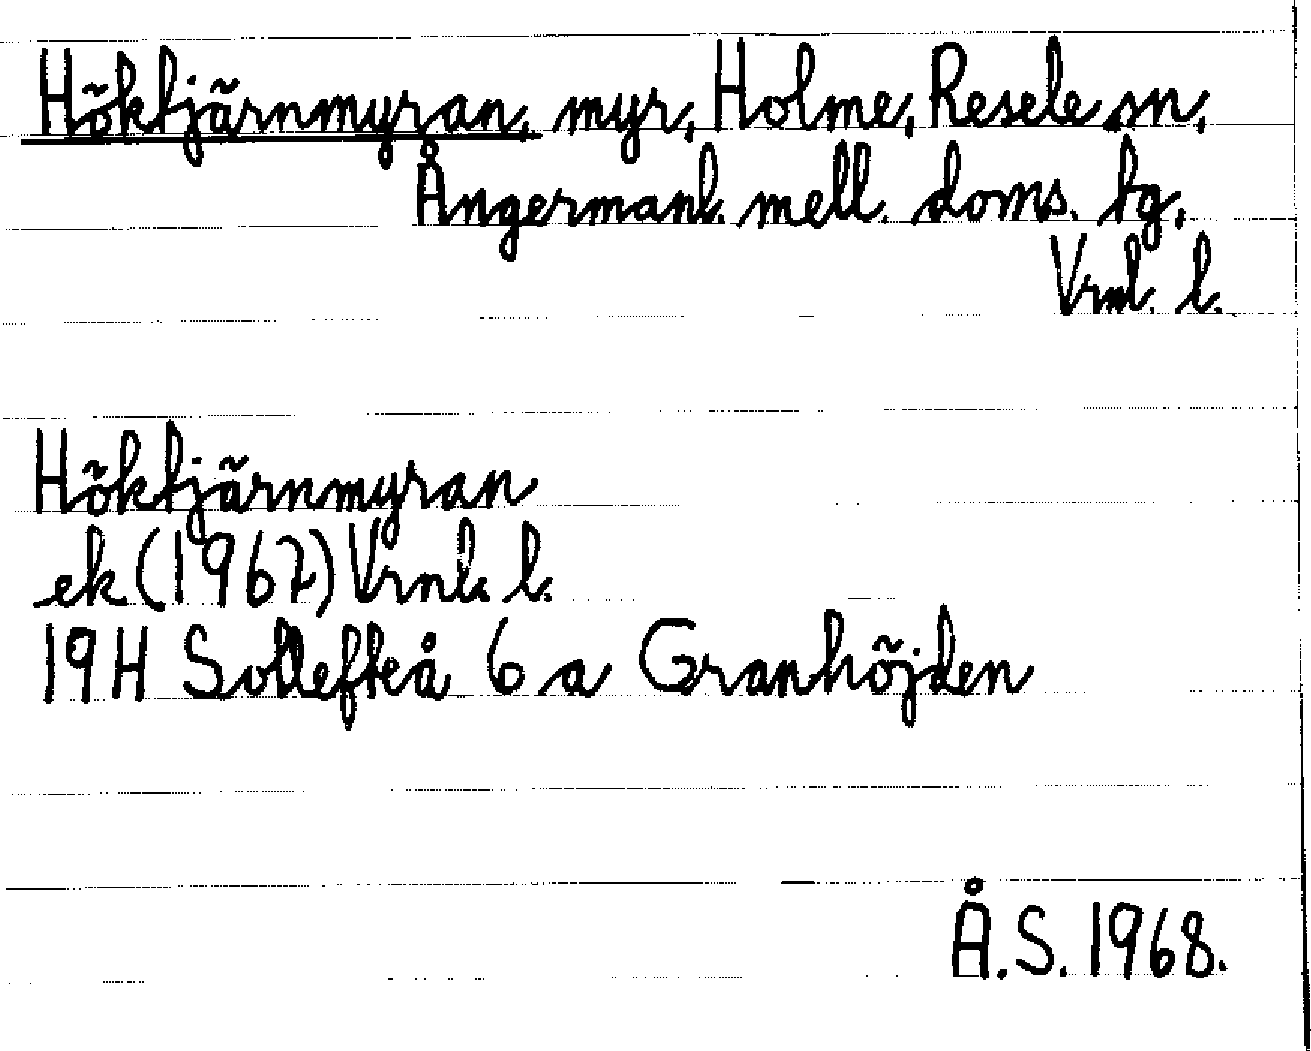 Höktjärnmyran, myr, Holme, Resele sn,
Ångermanl. mell. doms. tg,
Vrnl. l.
Höktjärnmyran
ek (1967) Vrnl. l.
19H Sollefteå 6 a Granhöjden
Å.S. 1968.